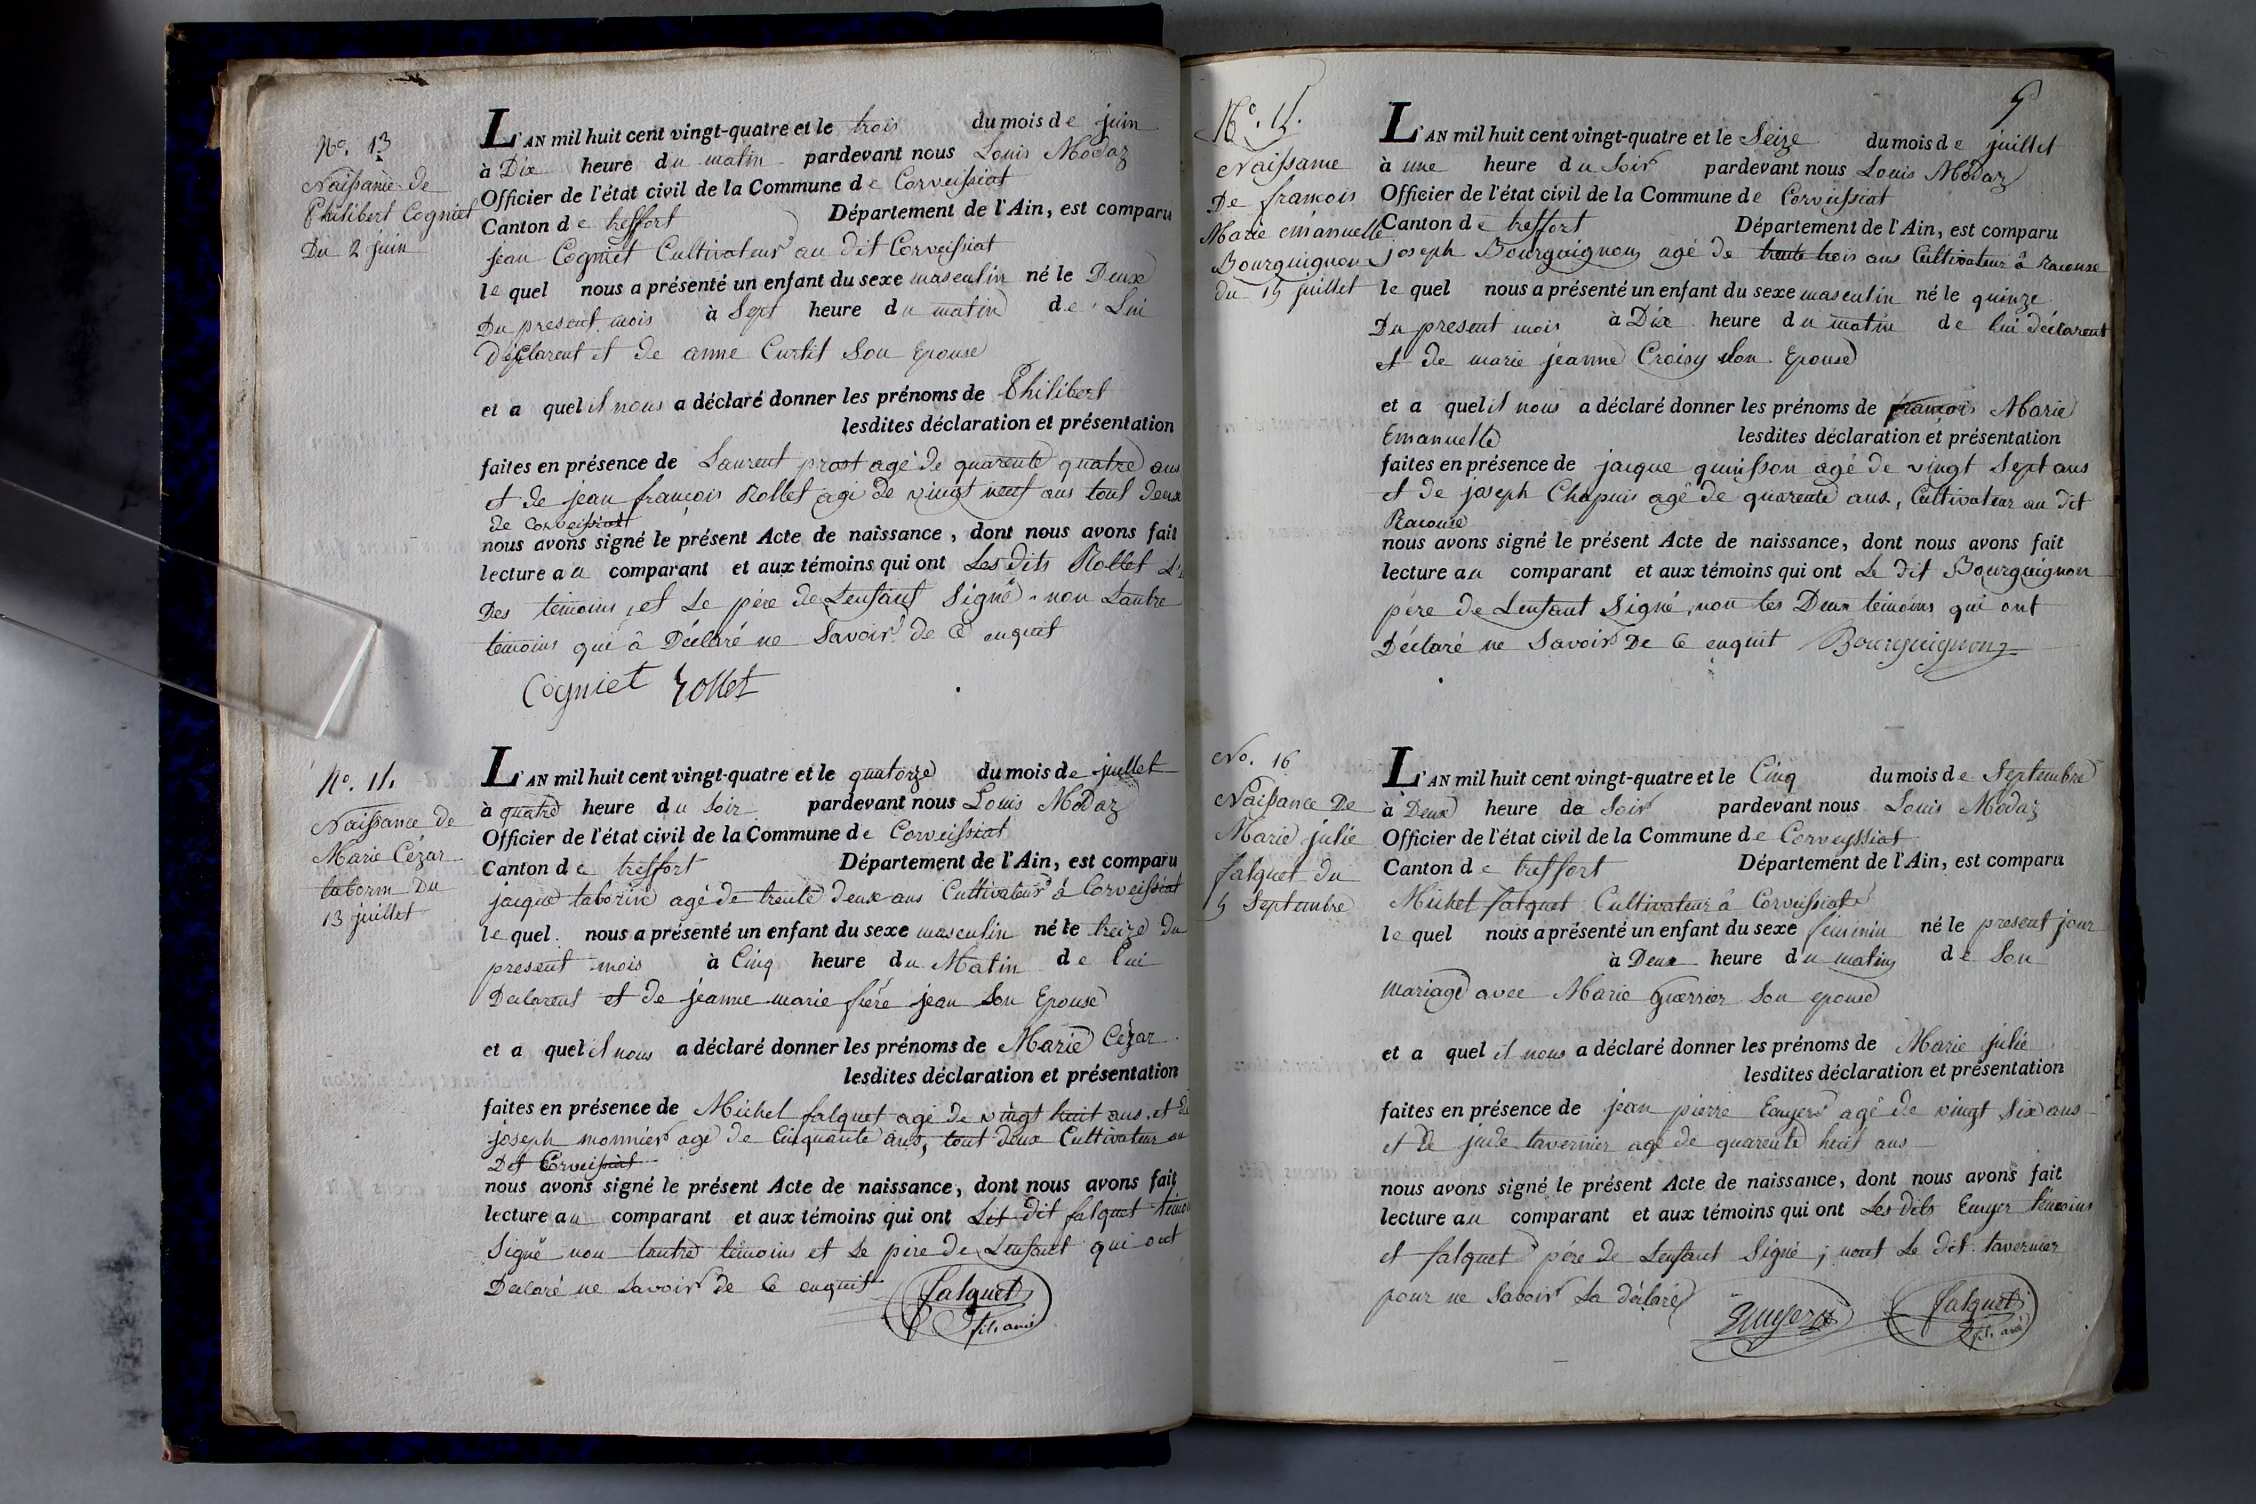 No. 13
Naissance de
Philibert Cogniet
Du 2 juin
L'AN mil huit cent vingt-quatre et le trois du mois de juin
à Dix heure du matin pardevant nous Louis Modaz
Officier de l'état civil de la Commune de Corveissiat
Canton de treffort Département de l'Ain, est comparu
jean Cogniet Cultivateur au dit Corveissiat
lequel nous a présenté un enfant du sexe masculin né le Deux
Du present mois à Sept heure du matin de Lui
Déclarent et de anne Curtit Son Epouse
et a quel il nous a déclaré donner les prénoms de Philibert
lesdites déclaration et présentation
faites en présence de Laurent prost agé de quarente quatre ans
et de jean françois Rollet agé de vingt neuf ans tout deux
de Corveissiat
nous avons signé le présent Acte de naissance, dont nous avons fait
lecture au comparant et aux témoins qui ont Les dits Rollet
Des temoins, et Le père de Lenfant Signé non Lautre
temoins qui à Déclaré ne Savoir de Ce enquit
Cogniet Rollet
No. 14
Naissance de
Marie Cézar
taborin Du
13 juillet
L'AN mil huit cent vingt-quatre et le quatorze du mois de juillet
à quatre heure du Soir pardevant nous Louis Modaz
Officier de l'état civil de la Commune de Corveissiat
Canton de treffort Département de l'Ain, est comparu
jacque taborin agé de trente deux ans Cultivateur à Corveissiat
lequel nous a présenté un enfant du sexe masculin né le treize Du
present mois à Cinq heure du Matin de Lui
Declarent et de jeanne marie frère jean Son Epouse
et a quel il nous a déclaré donner les prénoms de Marie Cézar
lesdites déclaration et présentation
faites en présence de Michel falquet agé de vingt huit ans, et de
joseph monnier agé de Cinquante ans, tout deux Cultivateur au
Dit Corveissiat
nous avons signé le présent Acte de naissance, dont nous avons fait
lecture au comparant et aux témoins qui ont Le dit falquet témoin
Signé non Lautre témoins et Le père de Lenfant qui ont
Declaré ne Savoir de Ce enquit
falquet
fils ainé
5
No. 15.
Naissance
De françois
Marie émanuelle
Bourguignon
du 15 juillet
L'AN mil huit cent vingt-quatre et le Seize du mois de juillet
à une heure du Soir pardevant nous Louis Modaz
Officier de l'état civil de la Commune de Corveissiat
Canton de treffort Département de l'Ain, est comparu
joseph Bourguignon agé de trente trois ans Cultivateur à Racouse
lequel nous a présenté un enfant du sexe masculin né le quinze
Du present mois à Dix heure du matin de Lui déclarent
et de marie jeanne Croisy Son Epouse
et a quel il nous a déclaré donner les prénoms de françois Marie
Emanuelle lesdites déclaration et présentation
faites en présence de jacque quinsson agé de vingt Sept ans
et de joseph Chapuis agé de quarente ans, Cultivateur au dit
Racouse
nous avons signé le présent Acte de naissance, dont nous avons fait
lecture au comparant et aux témoins qui ont Le dit Bourguignon
père de Lenfant Signé, non les Deux témoins qui ont
Déclaré ne Savoir De Ce enquit Bourguignon
No. 16
Naissance De
Marie julie
falquet du
5 Septembre
L'AN mil huit cent vingt-quatre et le Cinq du mois de Septembre
à Deux heure du Soir pardevant nous Louis Modaz
Officier de l'état civil de la Commune de Corveyssiat
Canton de treffort Département de l'Ain, est comparu
Michel falquet Cultivateur à Corveissiat
lequel nous a présenté un enfant du sexe féminin né le present jour
à Deux heure du matin de Son
mariage avec Marie guerrier Son epouse
et a quel il nous a déclaré donner les prénoms de Marie julie
lesdites déclaration et présentation
faites en présence de jean pierre Emyer agé de vingt Six ans
et De jude tavernier agé de quarente huit ans
nous avons signé le présent Acte de naissance, dont nous avons fait
lecture au comparant et aux témoins qui ont Les dits Emyer témoins
et falquet père de Lenfant Signé, nont Le dit tavernier
pour ne Savoir La déclaré
Emyer falquet
fils ainé